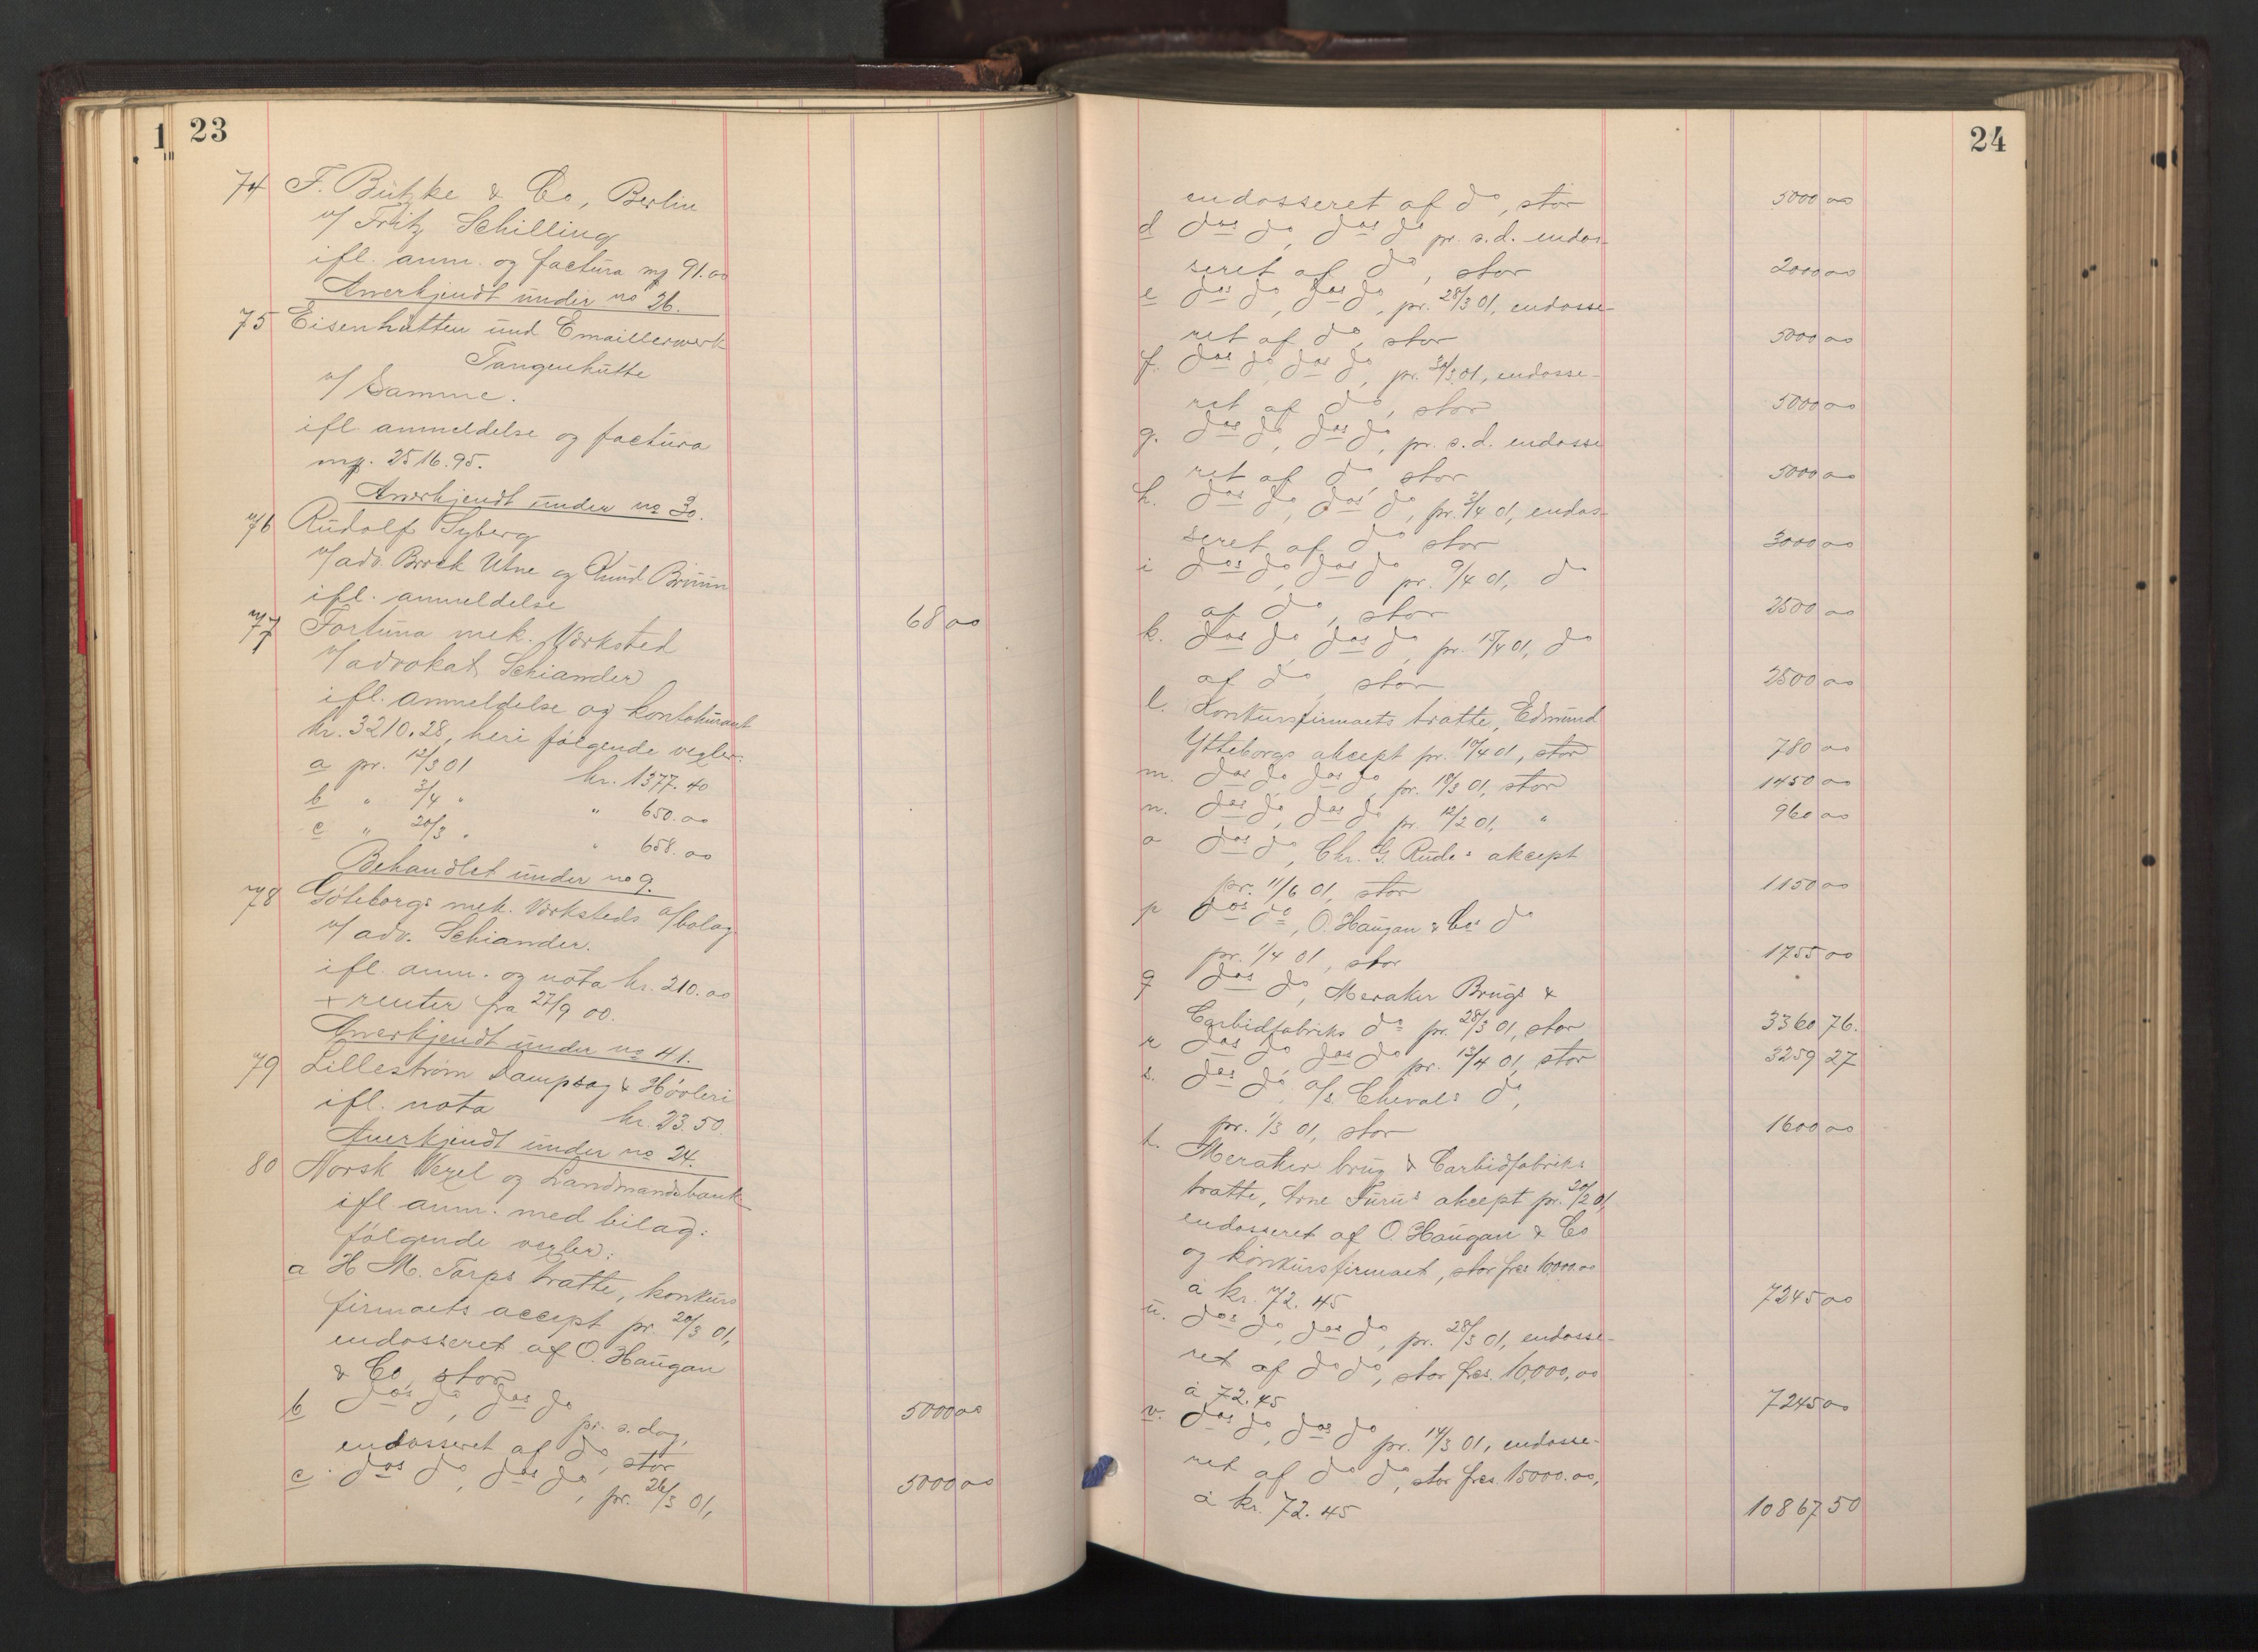 1 23
74 F. Butzke & Co, Berlin
v/ Fritz Schilling
ifl. anm. og factura mk 91.00
Anerkjendt under no 26.
75 Eisenhütten und Emaillerwerk
Tangerhütte
v/ Samme.
ifl. anmeldelse og factura
mk. 2516.95.
Anerkjendt under no 30.
76 Rudolf Syberg
v/ adv. Brock Utne og Knud Bruun
ifl. anmeldelse 68 00
77 Fortuna mek. Værksted
v/ advokat Schiander
ifl. anmeldelse og kontokurant
kr. 3210.28, heri følgende vexler:
a pr. 12/3 01 kr. 1377.40
b " 3/4 " " 650.00
c " 20/3 " " 658.00
Behandlet under no 9.
78 Göteborgs mek. Værksteds a/bolag
v/ adv. Schiander.
ifl. anm. og nota kr. 210.00
+ renter fra 27/9 00.
Anerkjendt under no 41.
79 Lillestrøm Dampsag & Høvleri
ifl. nota kr. 23.50.
Anerkjendt under no 24.
80 Norsk Vexel og Landmandsbank
ifl. anm. med bilag:
følgende vexler:
a H. M. Torps tratte, konkurs
firmaets accept pr. 20/3 01,
endosseret af O. Haugan
& Co, stor 5000 00
b dos do, dos do pr. s. dag,
endosseret af do, stor 5000 00
c. dos do, dos do, pr. 26/3 01,
24
endosseret af do, stor 5000 00
d dos do, dos do pr. s.d. endos-
seret af do, stor 2000 00
e dos do, dos do, pr. 28/3 01, endosse-
ret af do, stor 5000 00
f. dos do, dos do, pr. 30/3 01, endosse-
ret af do, stor 5000 00
g. dos do, dos do, pr. s.d. endosse
ret af do, stor 5000 00
h. dos do, dos do, pr. 3/4 01, endos-
seret af do stor 3000 00
i dos do, dos do pr. 9/4 01, do
af do, stor 2500 00
k. dos do, dos do, pr. 15/4 01, do
af do, stor 2500 00
l. Konkursfirmaets tratte, Edmund
Ytteborgs akcept pr. 10/4 01, stor 780 00
m. dos do, dos do, pr. 18/3 01, stor 1450 00
n. dos do, dos do pr. 12/2 01, " 960 00
o dos do, Chr. G. Rudes akcept
pr. 11/6 01, stor 1150 00
p dos do, O. Haugan & Cos do
pr. 1/4 01, stor 1755 00
q dos do, Meraker Brugs &
Carbidfabriks do pr. 28/3 01, stor 3360 76.
r dos do, dos do pr. 13/4 01, stor 3259 27
s. dos do, a/s. Chevals do,
pr. 1/3 01, stor 1600 00
t. Meraker brug & Carbidfabriks
tratte, Arne Furus akcept pr. 20/2 01,
endosseret af O. Haugan & Co
og konkursfirmaet, stor frcs 10000.00
à kr. 72.45 7245 00
u. dos do, dos do, pr. 28/3 01, endosse-
ret af do do, stor frcs. 10,000,00
à 72.45 7245 00
v. dos do, dos do pr. 14/3 01, endosse-
ret af do do, stor frcs. 15000.00,
à kr. 72.45 10867 50